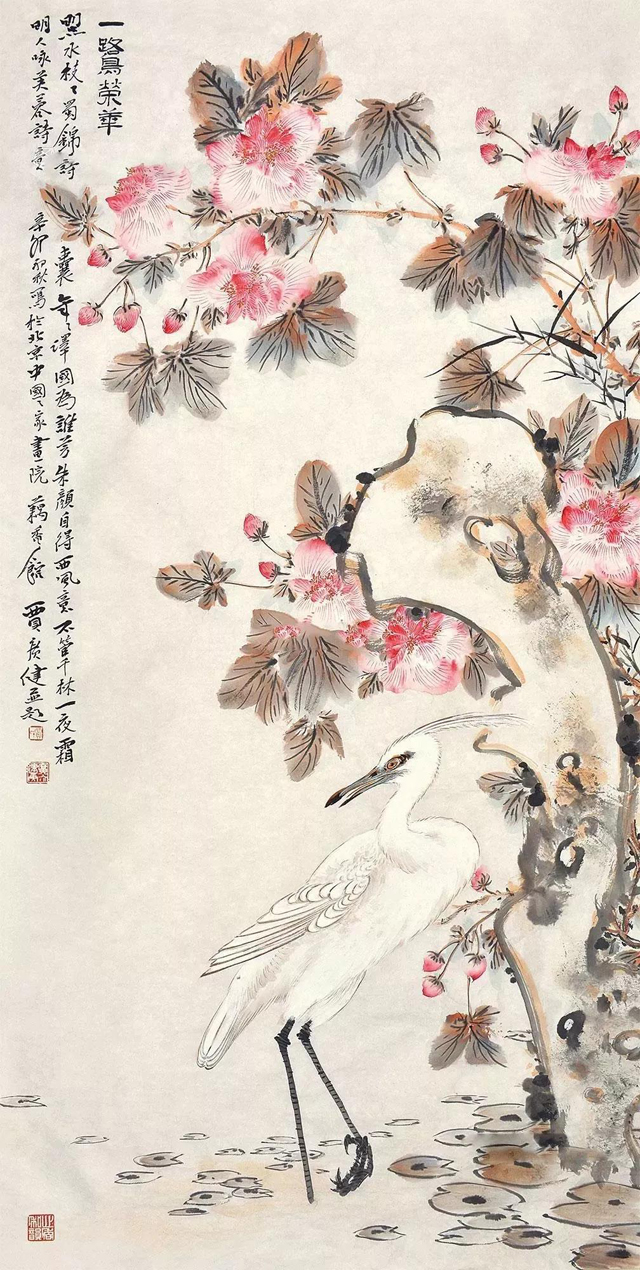 一鷺榮華
照水枝〻蜀錦囊年〻澤國為誰芳朱顏自得西風意不管千林一夜霜
明人咏芙蓉詩意辛卯初秋寫於北京中國〻家畫院藕香館賈廣健並題